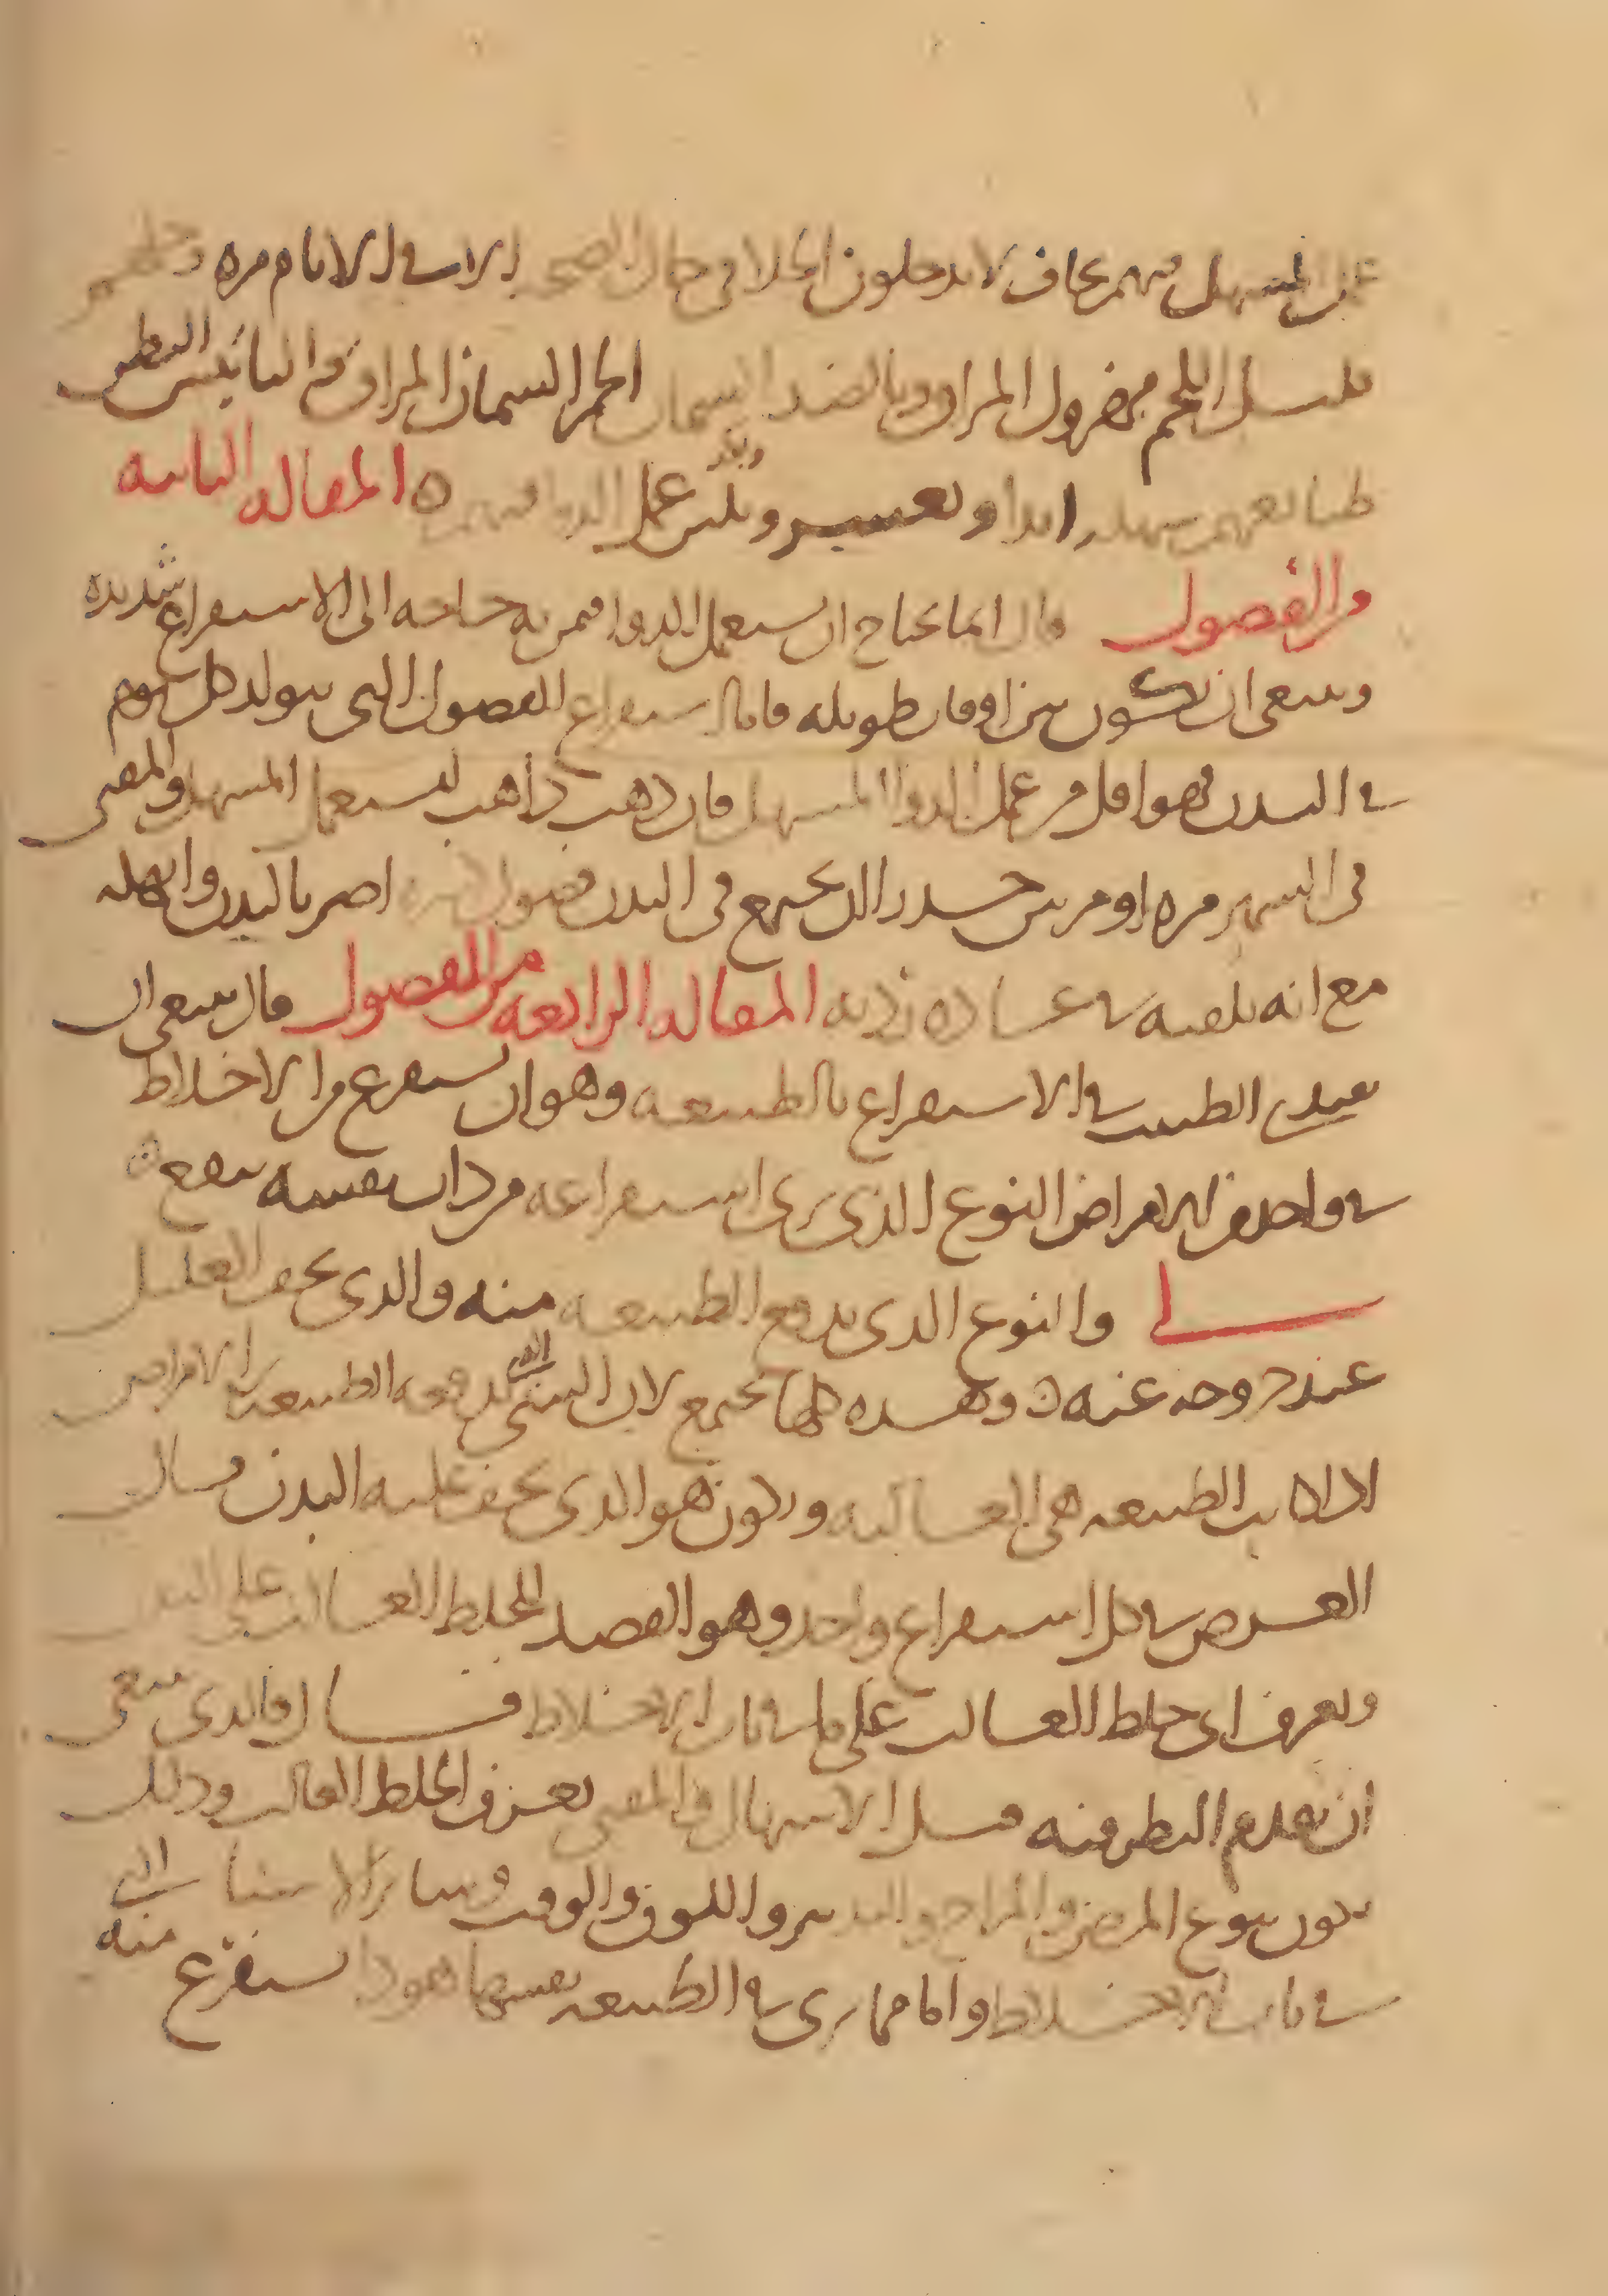 عن المسهل منهم نحاف لا يدخلون الخلا في حال الصحة الا في الايام مرة وخلقهم
قليل اللحم مهزول المراق وبالضد السمان الحمر السمان المراق اليابس البطن
طبايعهم ابدا وتعسر وعمل الدوا فيهم ه المقالة الثانية
من الفصول قال انما يحتاج ان يستعمل الدوا فمن به حاجة الى الاستفراغ شديدة
وينبغي ان يكون بين اوقات طويلة فاما استفراغ الفصول التي يتولد كل يوم
في البدن فهو اقل من عمل الدوا المسهل فان ذهب ذاهب ليستعمل المسهل والمقي
في الشهر مرة او مرتين حتى يجتمع في البدن فضول اضر بالبدن وانهكه
مع انه يلقيه في عادة ردية المقالة الرابعة من الفصول قال ينبغي ان
يقتدي الطبيب في الاستفراغ بالطبيعة وهو ان يستفرغ من الاخلاط
في واحد من الامراض النوع الذي يرى استفراغه من ذات نفسه ينفع ه
لى والنوع الذي يدفع الطبيعة منه والذي يخف العليل
عند خروجه عنه ه وهذه كلها تجتمع لان الشي الذي يدفعه الطبيعة الامراض
اذا كانت الطبيعة هي الغالبة ويكون هو الذي يخف عليه البدن قال
الغرض في كل استفراغ واحد وهو القصد للخلط الغالب على البدن
ويعرف اي خلط الغالب على ما في باب الاخلاط قال والذي ينبغي
ان يقدم النظر فيه قبل الاسهال والمقي تعرف الخلط الغالب وذلك
يكون بنوع المرض والمزاج والتدبير واللون والوقت وساير الاشيا التي
في باب الاخلاط واما مما يرى في الطبيعة نفسها هو ذا يستفرغ منه